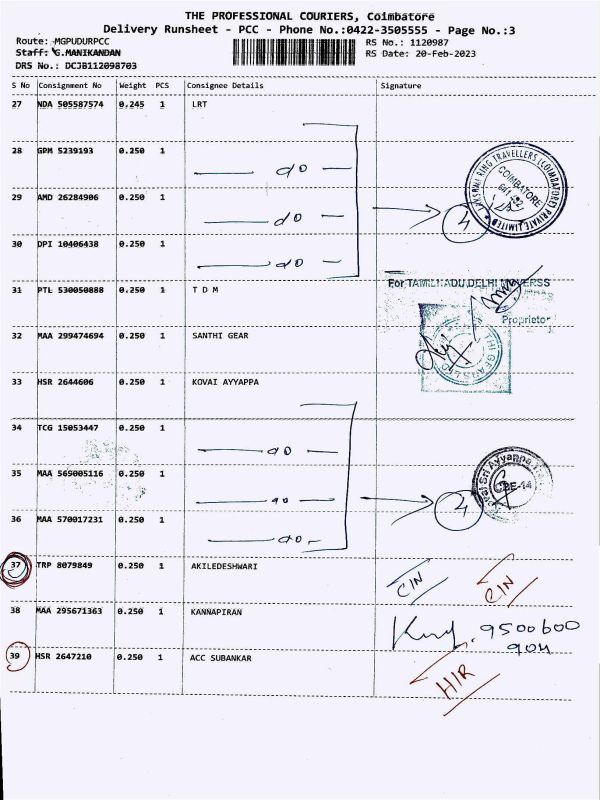 THE PROFESSIONAL COURIERS, Coimbatore
Delivery Runsheet - PCC - Phone No.:0422-3505555 - Page No.:3
Route: MGPUDURPCC
RS No.: 1120987
Staff: G.MANIKANDAN
RS Date: 20-Feb-2023
DRS No.: DCJB112098703
S No Consignment No Weight PCS Consignee Details Signature
27 NDA 505587574 0.245 1 LRT
28 GPM 5239193 0.250 1 do
29 AMD 26284906 0.250 1 do
4
LAKSHMI RING TRAVELLERS (COIMBATORE) PRIVATE LIMITED
COIMBATORE
30 DPI 10406438 0.250 1 do
31 PTL 530050888 0.250 1 T D M
For TAMILNADU DELHI
Proprietor
32 MAA 299474694 0.250 1 SANTHI GEAR
THI GEARS LTD
33 HSR 2644606 0.250 1 KOVAI AYYAPPA
34 TCG 15053447 0.250 1 do
35 MAA 569005116 0.250 1 do
4
Sri Ayyappa
CBE-14
36 MAA 570017231 0.250 1 do
37 TRP 8079849 0.250 1 AKILEDESHWARI
CIN
38 MAA 295671363 0.250 1 KANNAPIRAN
9500600
904
39 HSR 2647210 0.250 1 ACC SUBANKAR
HIR